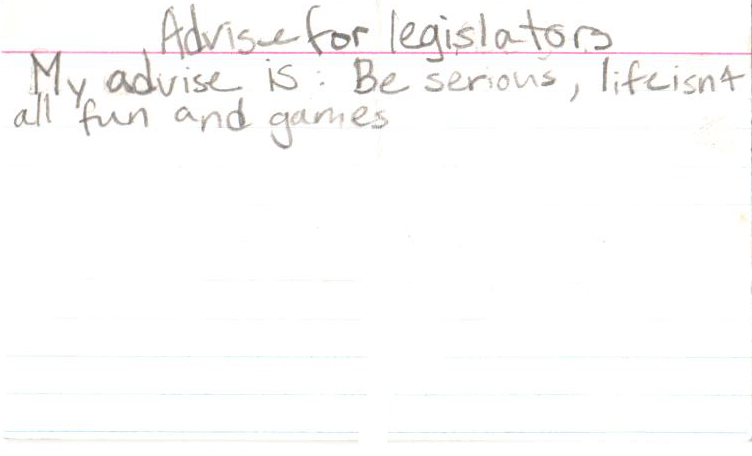 Advise for legislators
My advise is : Be serious, life isnt
all fun and games